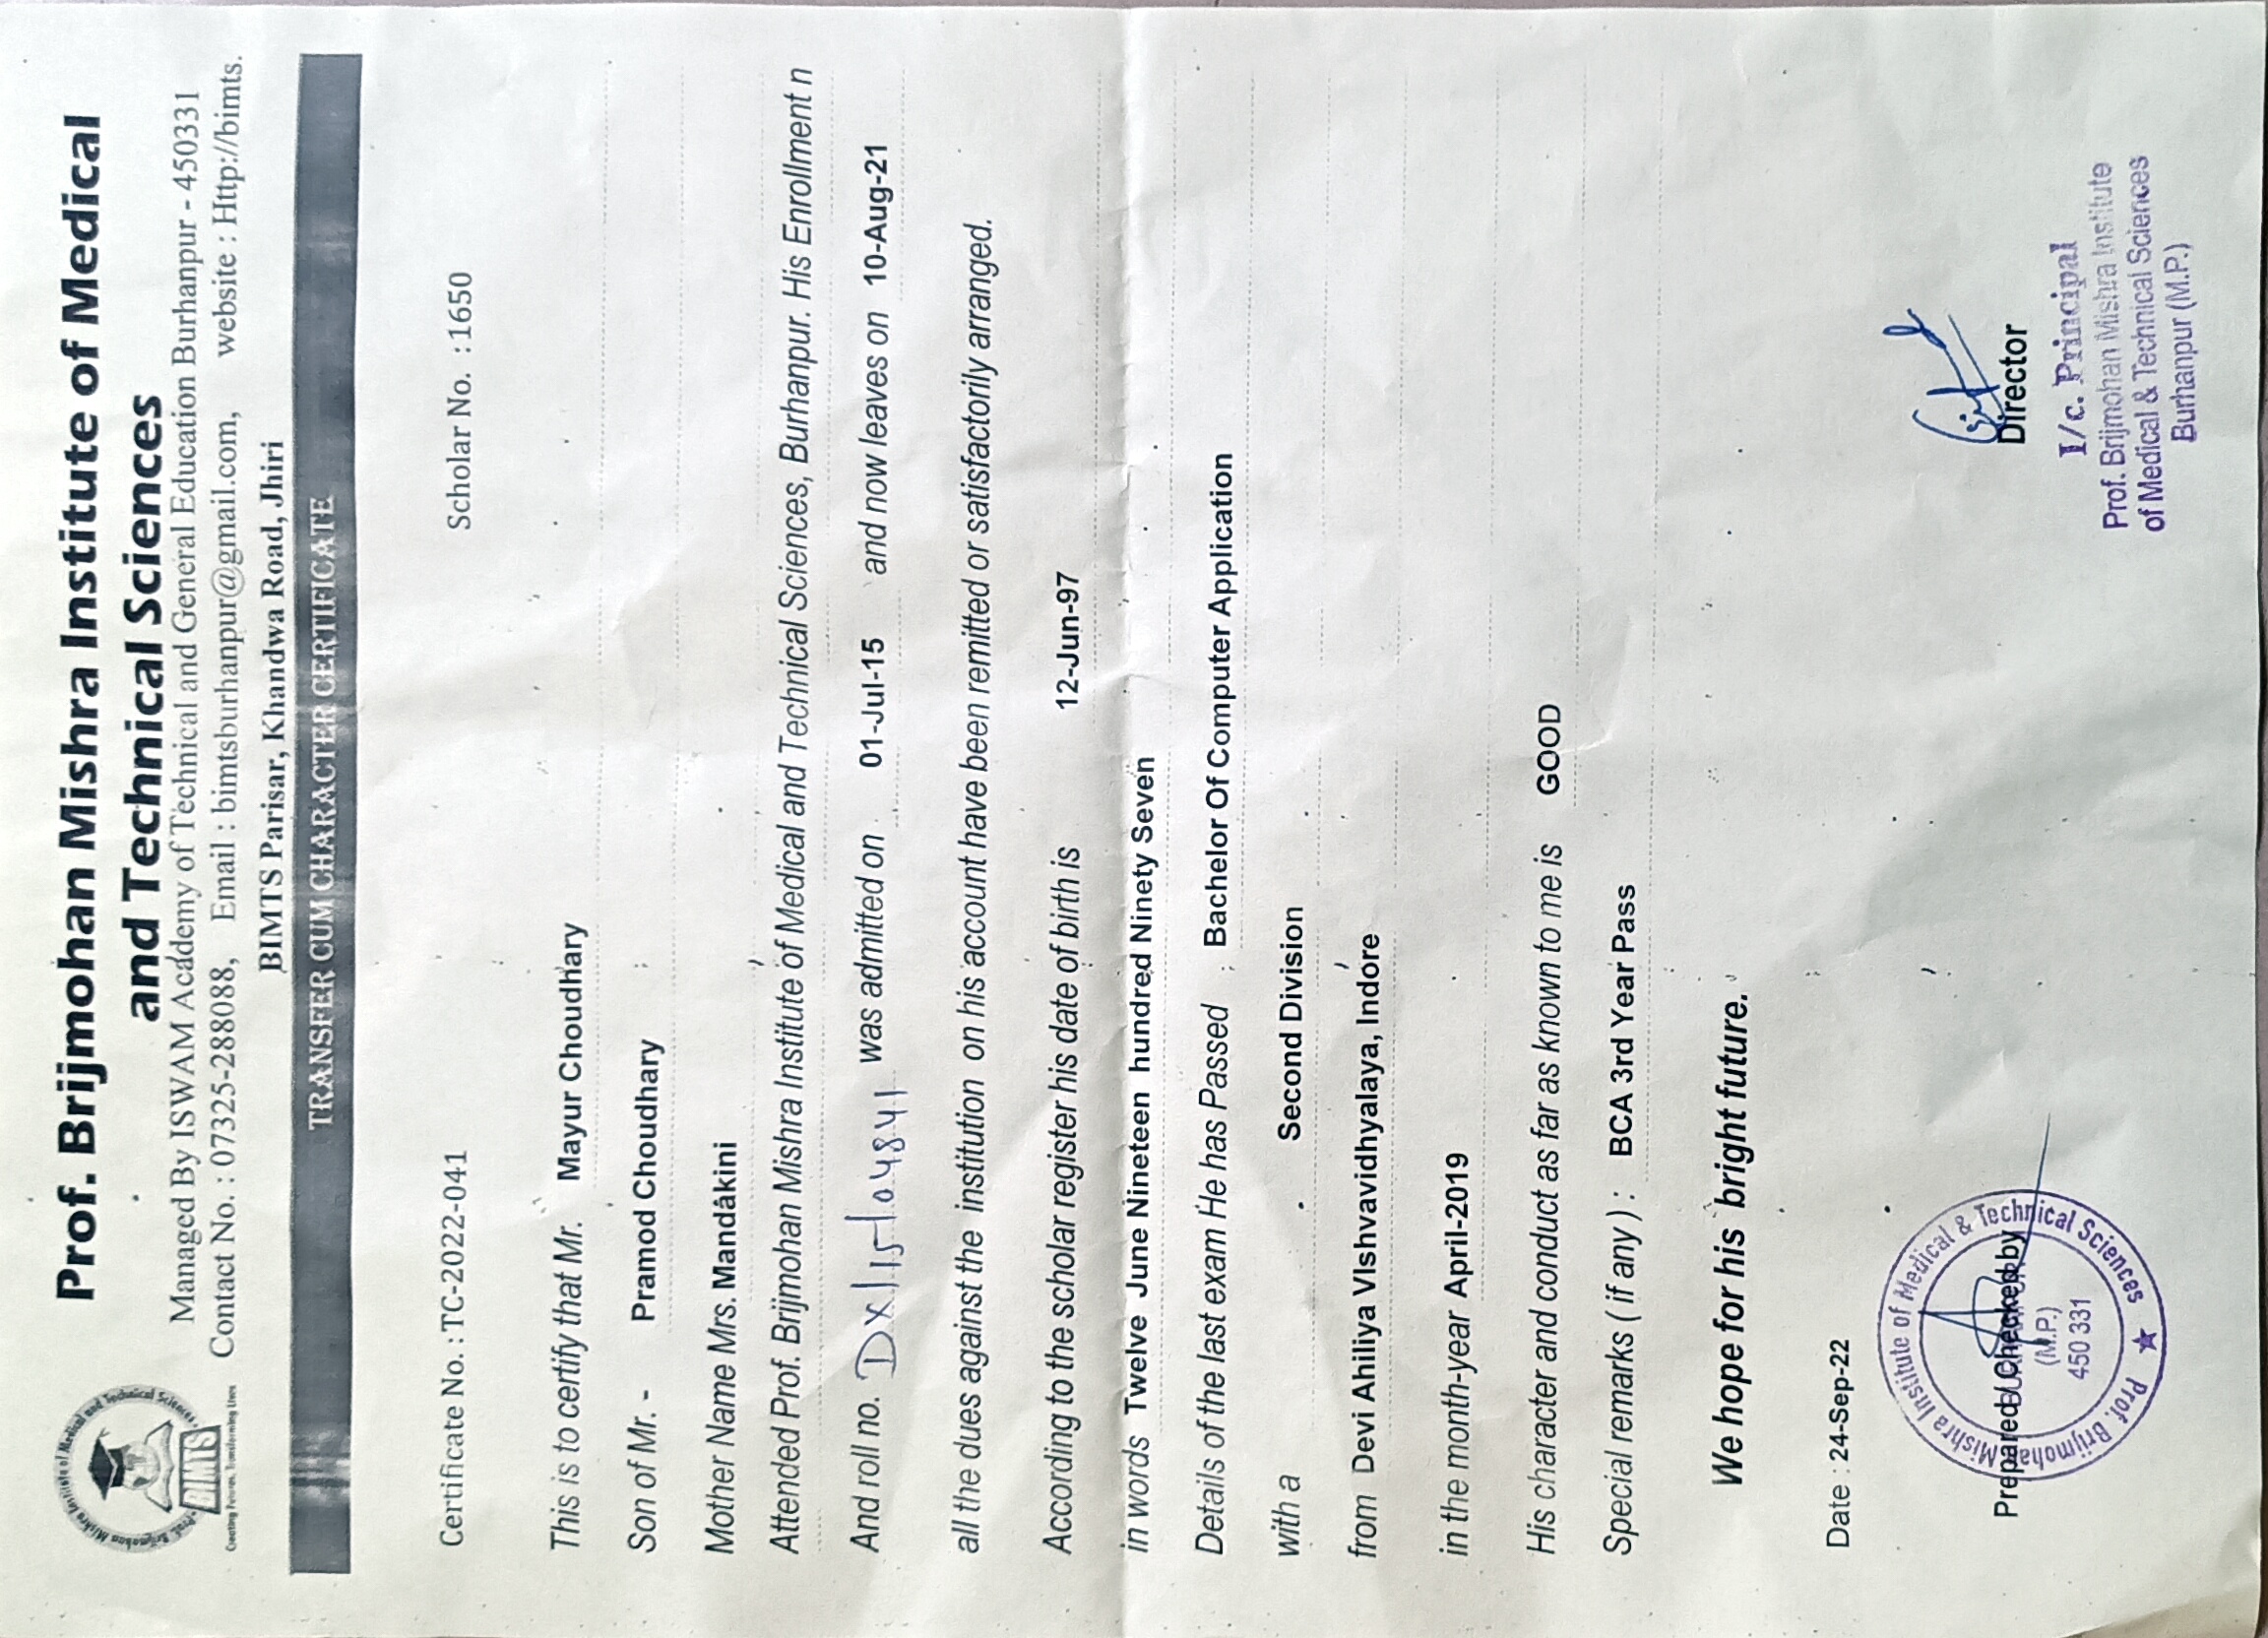 Prof. Brijmohan Mishra Institute of Medical
and Technical Sciences
Managed By ISWAM Academy of Technical and General Education Burhanpur - 450331
Contact No. : 07325-288088, Email : bimtsburhanpur@gmail.com, website : Http://bimts.
BIMTS Parisar, Khandwa Road, Jhiri
Prof. Brijmohan Mishra Institute of Medical and Technical Sciences
BIMTS
Creating Persons, Transforming Lives
TRANSFER CUM CHARACTER CERTIFICATE
Certificate No. : TC-2022-041 Scholar No. : 1650
This is to certify that Mr. Mayur Choudhary
Son of Mr. - Pramod Choudhary
Mother Name Mrs. Mandakini
Attended Prof. Brijmohan Mishra Institute of Medical and Technical Sciences, Burhanpur. His Enrollment n
And roll no. DX15104841 was admitted on 01-Jul-15 and now leaves on 10-Aug-21
all the dues against the institution on his account have been remitted or satisfactorily arranged.
According to the scholar register his date of birth is 12-Jun-97
in words Twelve June Nineteen hundred Ninety Seven
Details of the last exam He has Passed : Bachelor Of Computer Application
with a Second Division
from Devi Ahiliya VIshvavidhyalaya, Indore
in the month-year April-2019
His character and conduct as far as known to me is GOOD
Special remarks ( if any ) : BCA 3rd Year Pass
We hope for his bright future.
Date : 24-Sep-22
Prepared/Checked by Director
Prof. Brijmohan Mishra Institute of Medical & Technical Sciences
(M.P.)
450 331
I/c. Principal
Prof. Brijmohan Mishra Institute
of Medical & Technical Sciences
Burhanpur (M.P.)